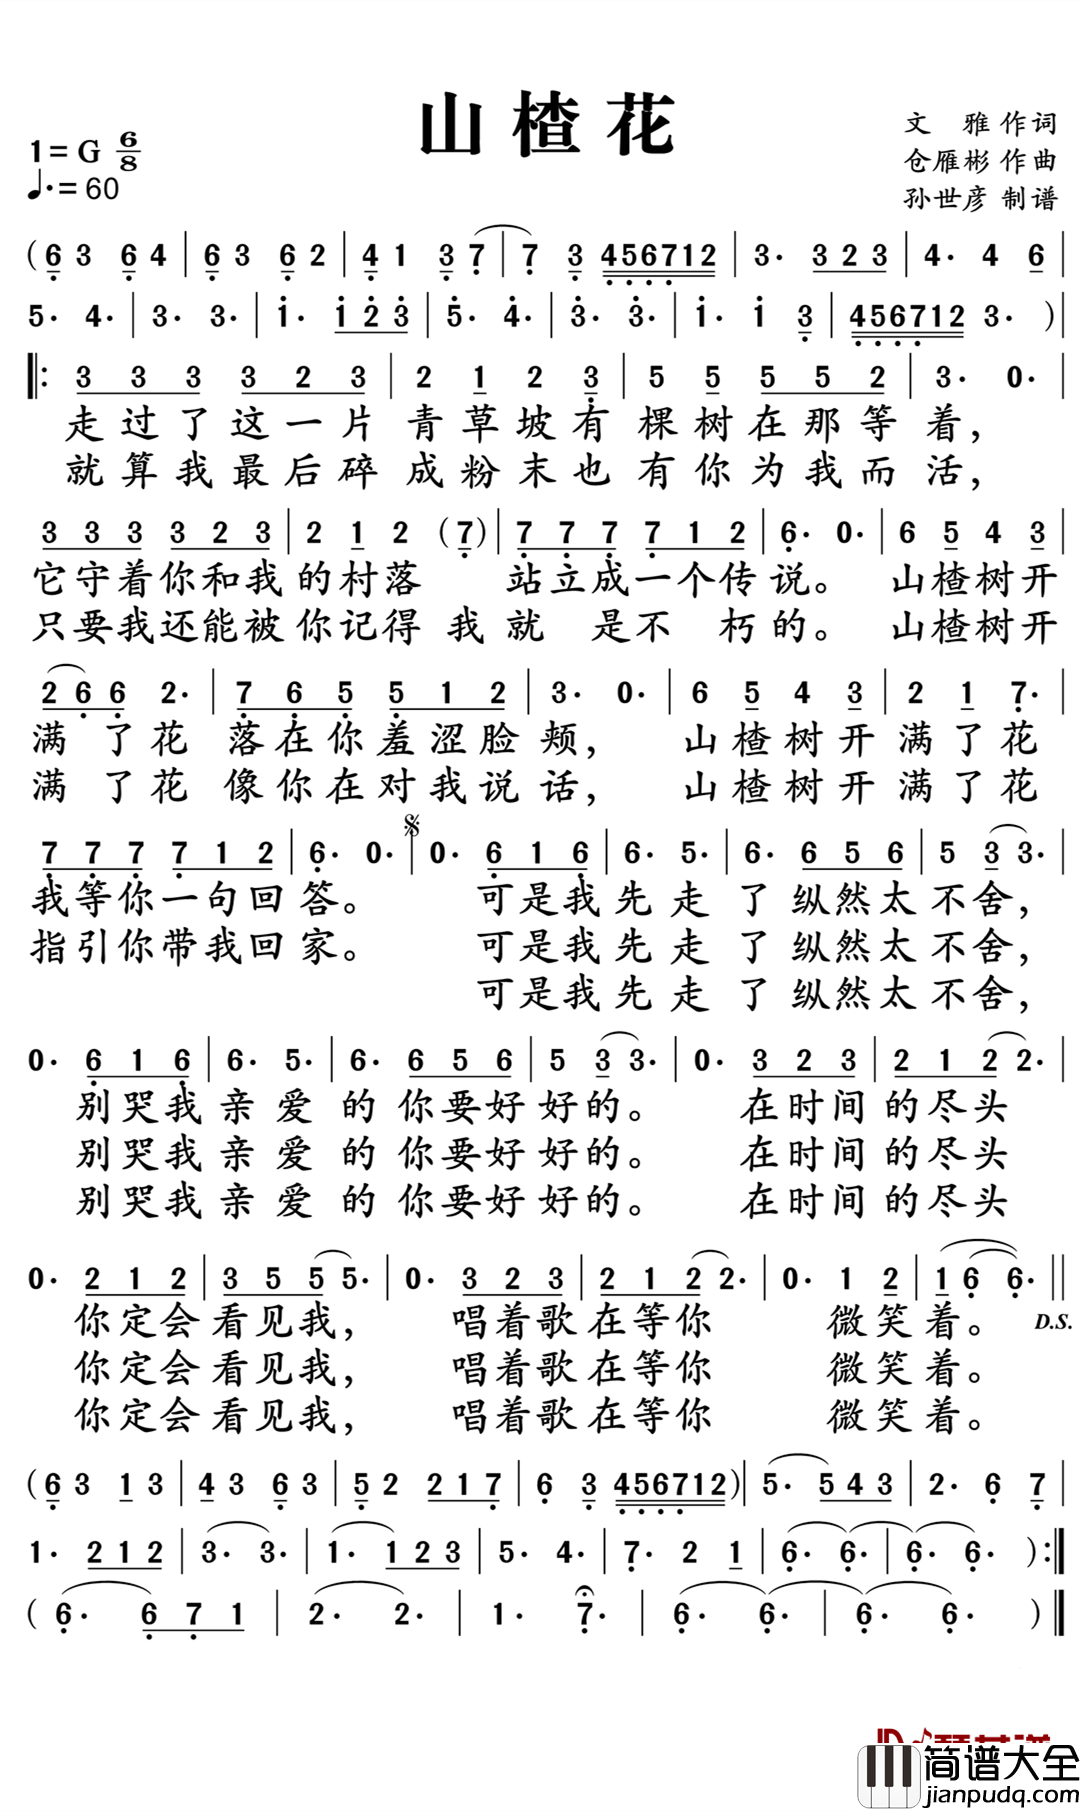 山楂花
文 雅 作词
1= G 6/8
仓雁彬 作曲
♩. = 60
孙世彦 制谱
( 6 3 6 4 | 6 3 6 2 | 4 1 3 7 | 7 3 456712 | 3· 3 2 3 | 4· 4 6 |
5· 4· | 3· 3· | 1· 1 2 3 | 5· 4· | 3· 3· | 1· 1 3 | 456712 3· ) |
|: 3 3 3 3 2 3 | 2 1 2 3 | 5 5 5 5 2 | 3· 0· |
走过了这一片 青草坡有 棵树在那等着，
就算我最后碎 成粉末也 有你为我而活，
3 3 3 3 2 3 | 2 1 2 (7) | 7 7 7 7 1 2 | 6· 0· | 6 5 4 3 |
它守着你和我的村落 站立成一个传说。 山楂树开
只要我还能被你记得 我就 是不 朽的。 山楂树开
2 6 6 2· | 7 6 5 5 1 2 | 3· 0· | 6 5 4 3 | 2 1 7· |
满 了花 落在你羞涩脸颊， 山楂树开满了花
满 了花 像你在对我说话， 山楂树开满了花
7 7 7 7 1 2 | 6· 0· | 0· 6 1 6 | 6· 5· | 6· 6 5 6 | 5 3 3· |
我等你一句回答。 可是我先走 了纵然太不舍，
指引你带我回家。 可是我先走 了纵然太不舍，
可是我先走 了纵然太不舍，
0· 6 1 6 | 6· 5· | 6· 6 5 6 | 5 3 3· | 0· 3 2 3 | 2 1 2 2· |
别哭我亲爱的你要好好的。 在时间的尽头
别哭我亲爱的你要好好的。 在时间的尽头
别哭我亲爱的你要好好的。 在时间的尽头
0· 2 1 2 | 3 5 5 5· | 0· 3 2 3 | 2 1 2 2· | 0· 1 2 | 1 6 6· ||
你定会看见我， 唱着歌在等你 微笑着。 D.S.
你定会看见我， 唱着歌在等你 微笑着。
你定会看见我， 唱着歌在等你 微笑着。
( 6 3 1 3 | 4 3 6 3 | 5 2 2 1 7 | 6 3 456712 ) | 5· 5 4 3 | 2· 6 7 |
1· 2 1 2 | 3· 3· | 1· 1 2 3 | 5· 4· | 7· 2 1 | 6· 6· | 6· 6· ) :|
( 6· 6 7 1 | 2· 2· | 1· 7· | 6· 6· | 6· 6· ) ||
简谱大全
jianpudq.com